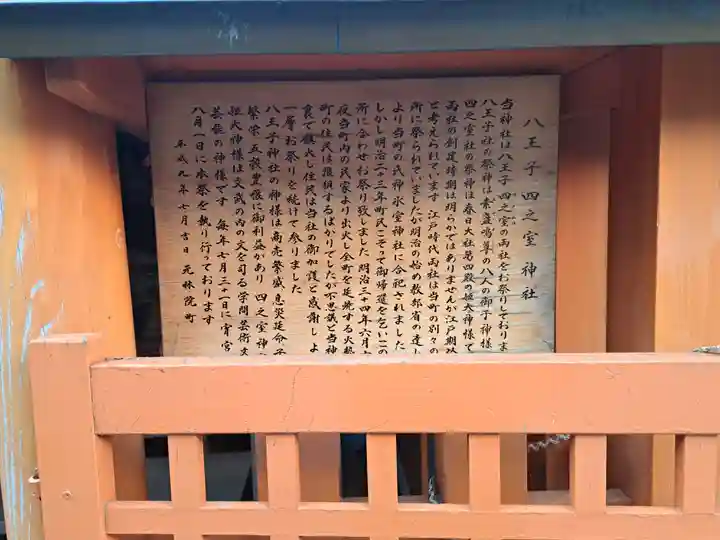 八王子 四之室 神社
当神社は八王子 四之室の両社をお祭りしておりま
八王子社の祭神は素盞鳴尊の八人の御子神様
四之室社の祭神は春日大社第四殿の姫大神様で
両社の創建時期は明らかではありませんが江戸期以
と考えられています 江戸時代両社は当町の別々の
所に祭られていましたが明治の始め教部省の達し
より当町の氏神氷室神社に合祀されました
しかし明治二十三年町民こぞって御帰還を乞いこの
所に合わせお祭り致しました 明治三十四年六月
夜当町内の民家より出火し全町を延焼する火勢
町の住民は狼狽するばかりでしたが不思議と当神
裏で鎮火し住民は当社の御加護と感謝しよ
一層お祭りを続けて参りました
八王子神社の神様は商売繁盛 息災延命 子
繁栄 五穀豊穣に御利益があり 四之室神
姫大神様は文武の内の文を司る学問芸術文
芸能の神様です 毎年七月三十一日に宵宮
八月一日に本祭を執り行っております
平成九年七月吉日 元林院町